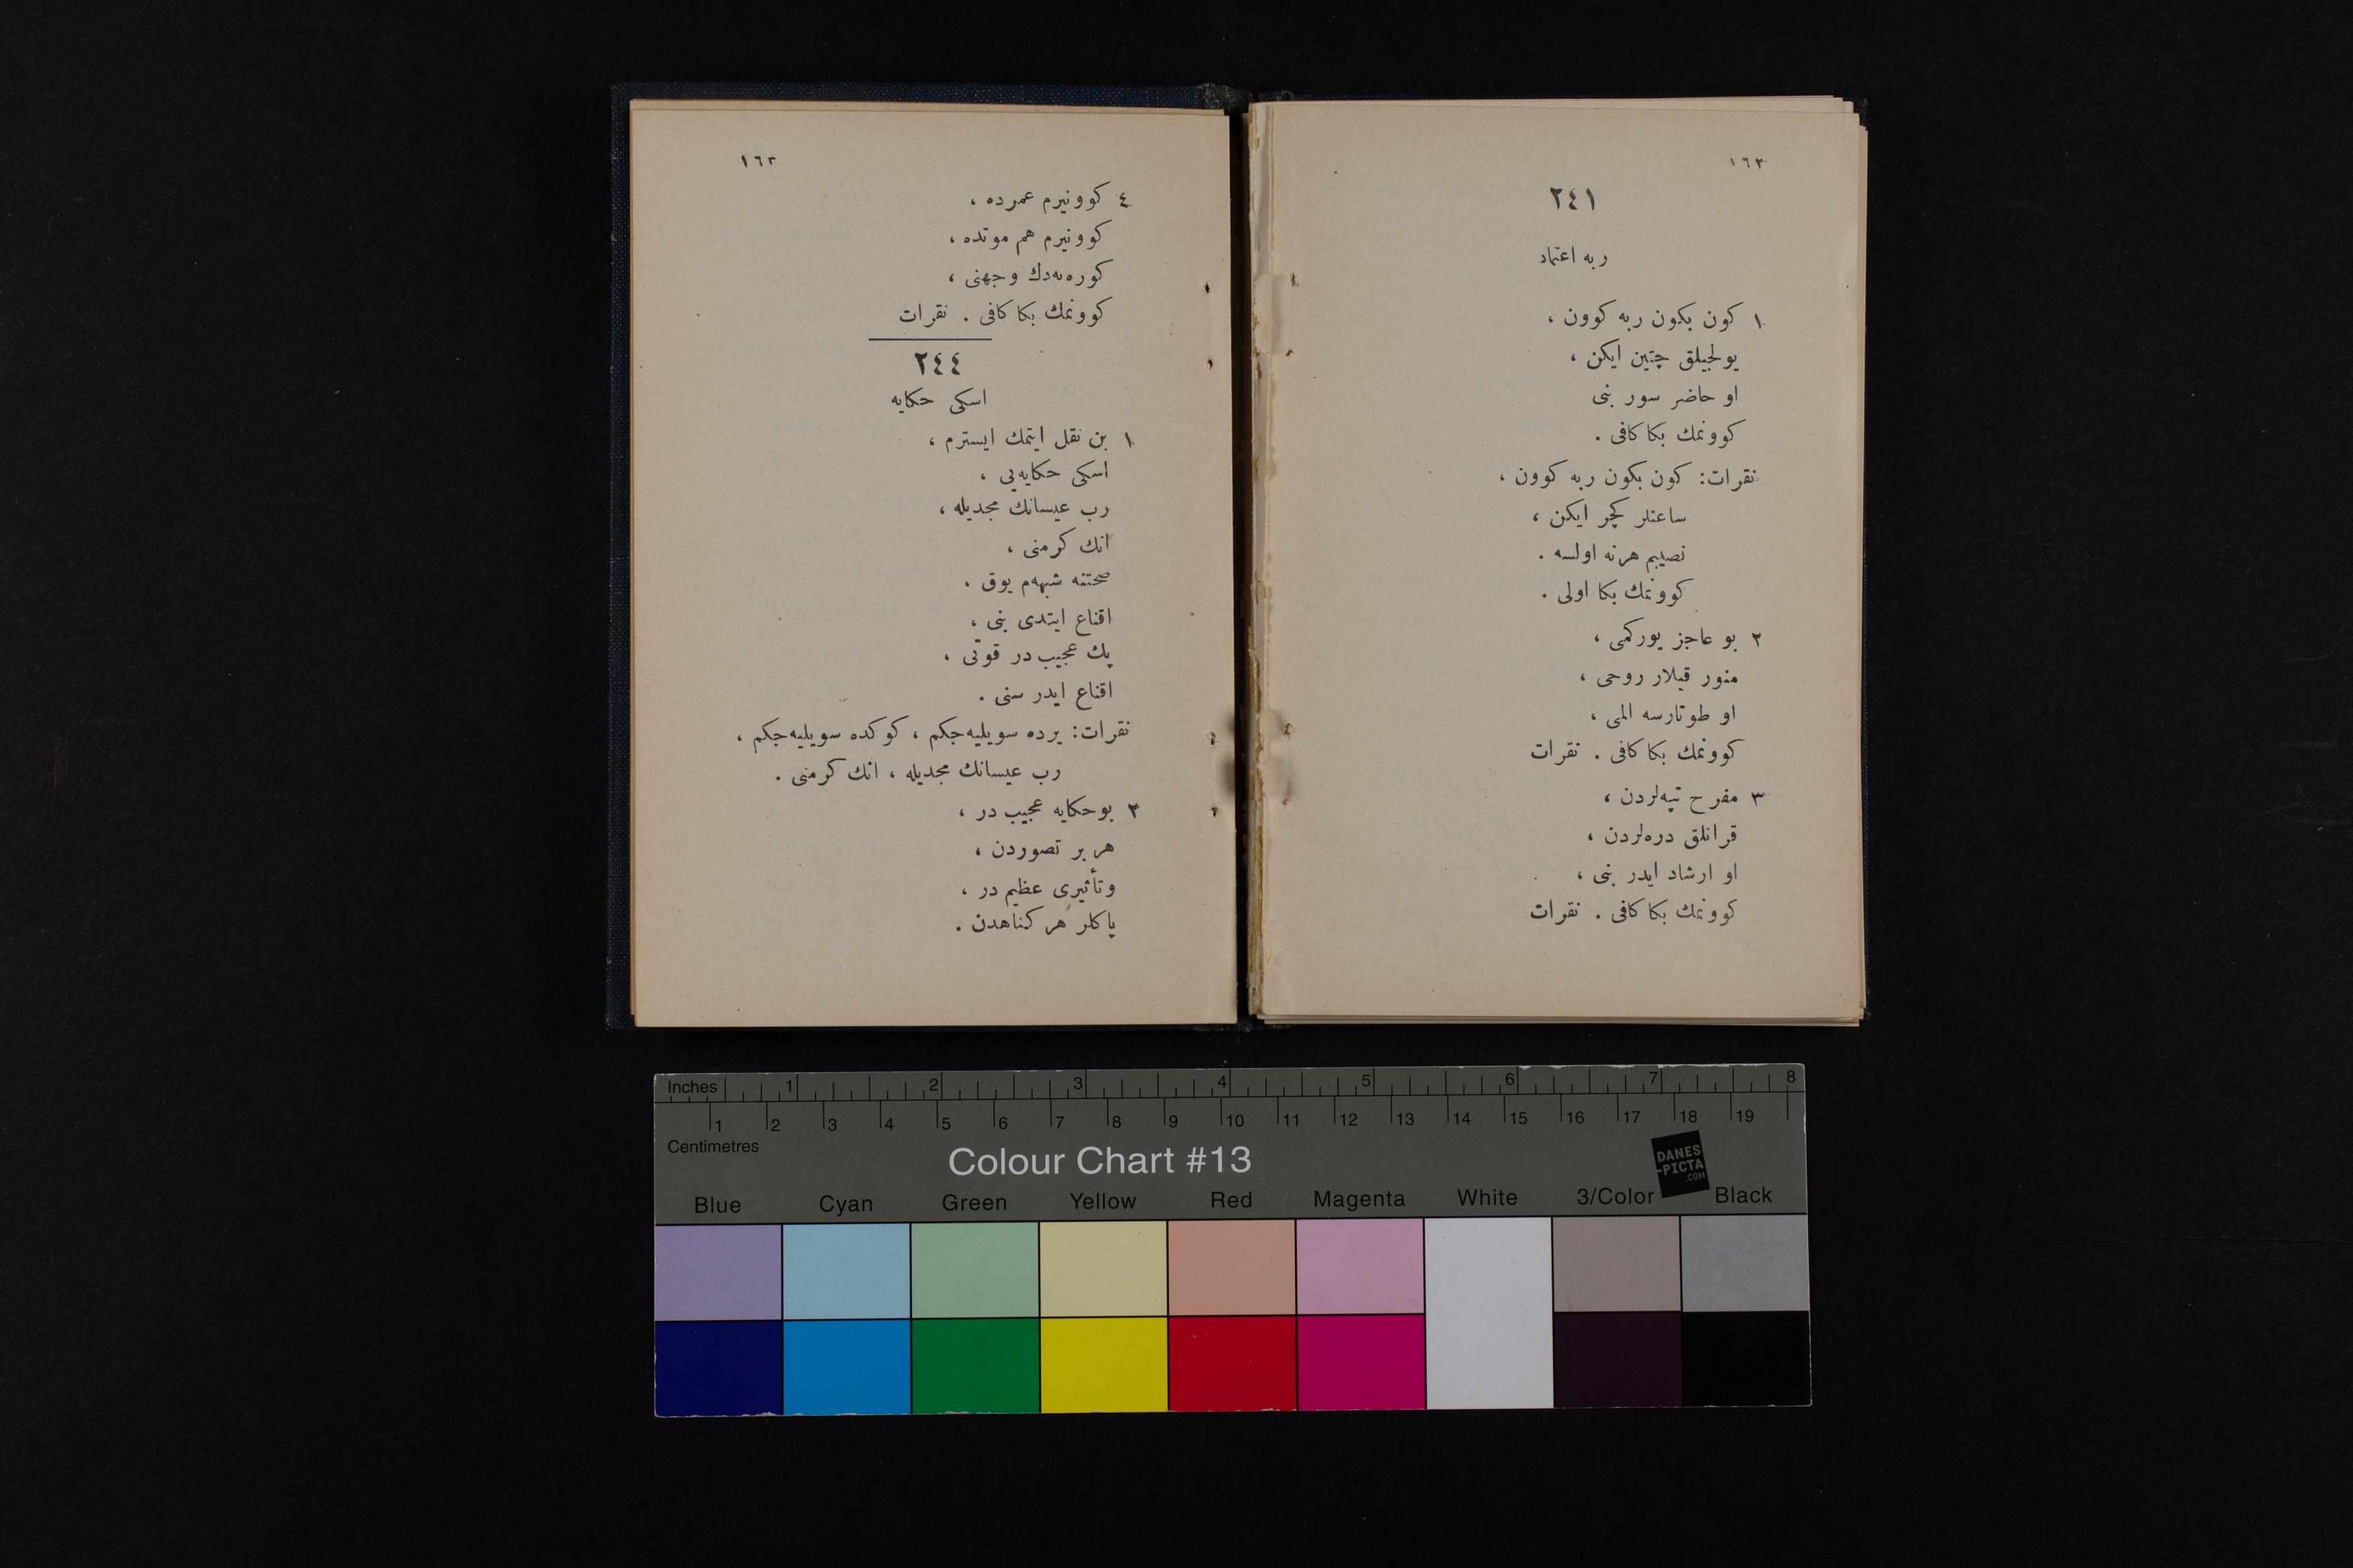 ١٦٢
٢٤١
ربه اعتماد
١ كون بكون ربه كوون ،
يولجيلق چتين ايكن ،
او حاضر سور بنى
كوونمك بكا كافى .
نقرات: كون بكون ربه كوون ،
ساعتلر كچر ايكن ،
نصيبم هرنه اولسه .
كوونمك بكا اولى .
٢ بو عاجز يوركمى ،
منور قيلار روحى ،
او طوتارسه المى ،
كوونمك بكا كافى . نقرات
٣ مفرح تپه‌لردن ،
قرانلق دره‌لردن ،
او ارشاد ايدر بنى ،
كوونمك بكا كافى . نقرات
١٦٣
٤ كوونيرم عمرده ،
كوونيرم هم موتده ،
كوره‌نه‌دك وجهنى ،
كوونمك بكا كافى . نقرات
٢٤٤
اسكى حكايه
١ بن نقل ايتمك ايسترم ،
اسكى حكايه‌يى ،
رب عيسانك مجديله ،
انك كرمنى ،
صحتنه شبهه‌م يوق ،
اقناع ايتدى بنى ،
پك عجيب در قوتى ،
اقناع ايدر سنى .
نقرات: يرده سويليه‌جكم ، كوكده سويليه‌جكم ،
رب عيسانك مجديله ، انك كرمنى .
٢ بو حكايه عجيب در ،
هر بر تصوردن ،
وتأثيرى عظيم در ،
پاكلر هر كناهدن .
Inches 1 2 3 4 5 6 7 8
1 2 3 4 5 6 7 8 9 10 11 12 13 14 15 16 17 18 19
Centimetres
Colour Chart #13
DANES
-PICTA
.COM
Blue Cyan Green Yellow Red Magenta White 3/Color Black